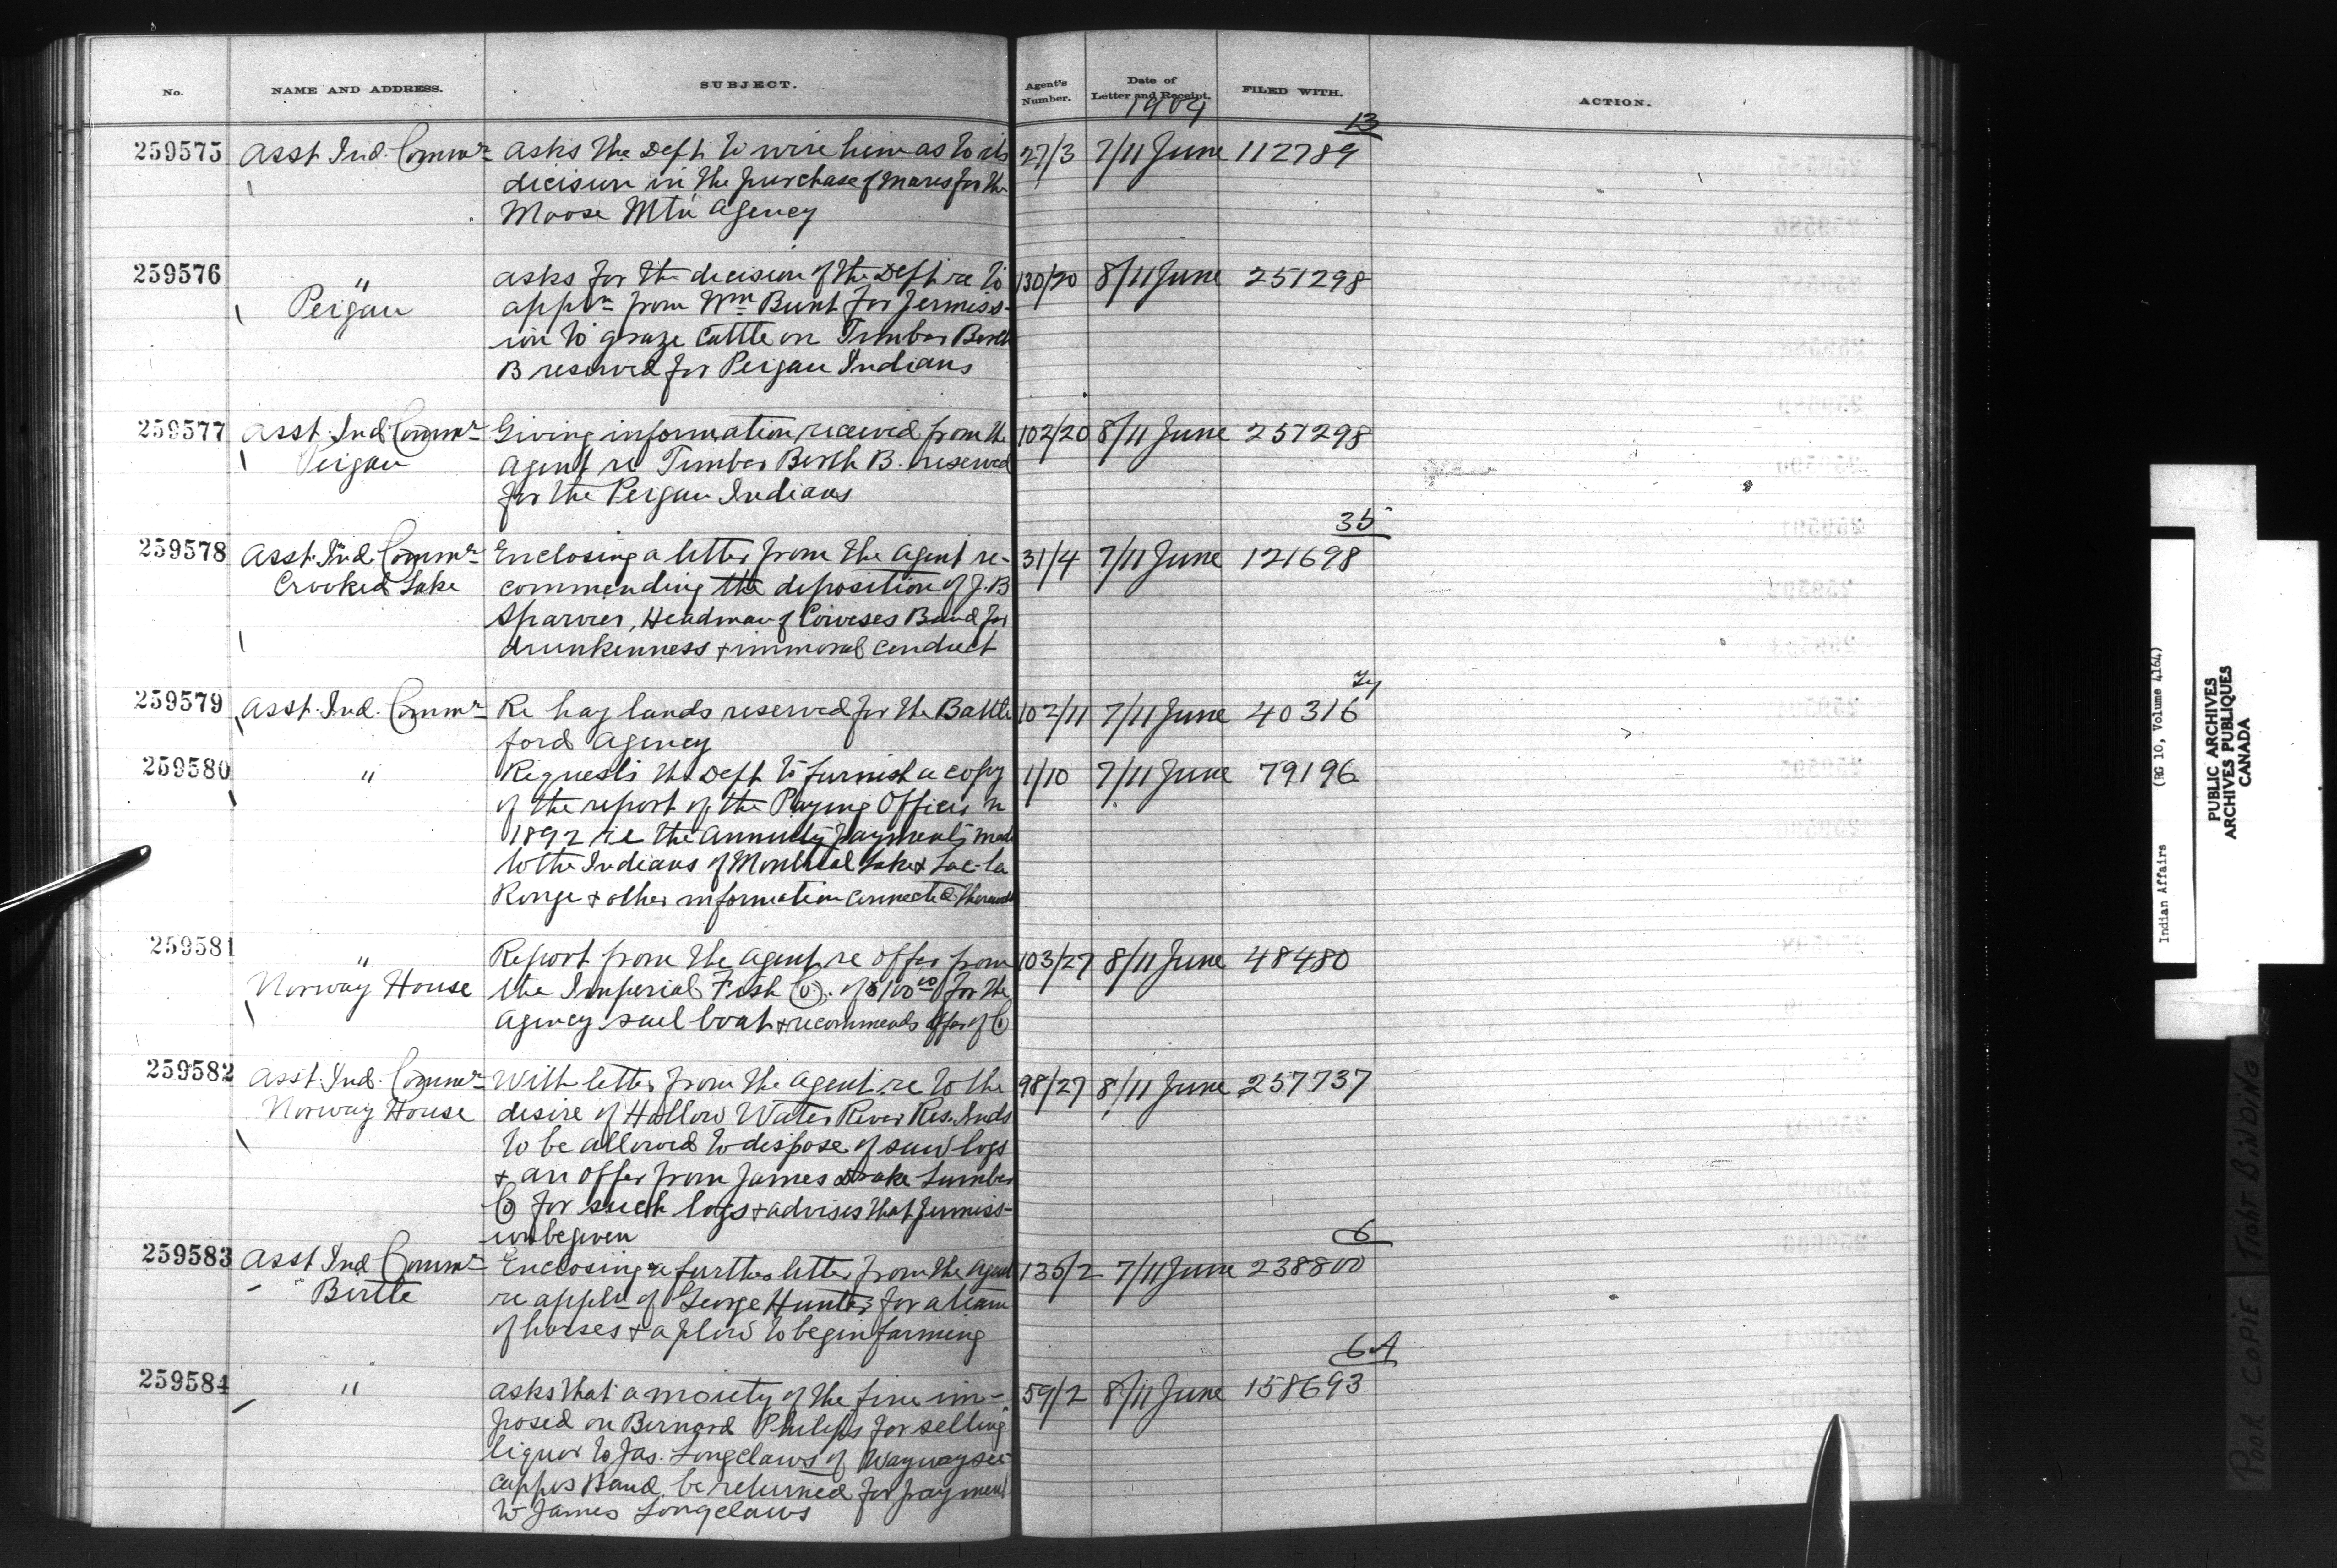 No. NAME AND ADDRESS. SUBJECT. Agent's Number. Date of Letter and Receipt. FILED WITH. ACTION.
1904
13
259575 Asst. Ind. Commr Asks the Dept to wire him as to its 27/3 7/11 June 112789
decision in the purchase of mares for the
Moose Mtn Agency
259576 " Asks for the decision of the Dept re to 130/20 8/11 June 251298
Peigan appln from Wm Bunt for permiss-
ion to graze cattle on Timber Berth
B reserved for Peigan Indians
259577 Asst. Ind Commr Giving information received from the 102/20 8/11 June 257298
Peigan Agent re Timber Berth B. reserved
for the Peigan Indians
35
259578 Asst. Ind. Commr Enclosing a letter from the Agent re- 31/4 7/11 June 121698
Crooked Lake commending the deposition of J. B
Sparvier, Headman of Coweses Band for
drunkenness & immoral conduct
259579 Asst. Ind. Commr Re hay lands reserved for the Battle 102/11 7/11 June 40316
ford Agency
259580 " Requests the Dept to furnish a copy 1/10 7/11 June 79196
of the report of the Paying Officer in
1892 re the annuity payments made
to the Indians of Montreal Lake & Lac-la
Ronge & other information connected therewith
259581 " Report from the Agent re offer from 103/27 8/11 June 48480
Norway House the Imperial Fish Co. of $100 00 for the
Agency sail boat & recommends offer of Co
259582 Asst. Ind. Commr With letter from the Agent re to the 98/27 8/11 June 257737
Norway House desire of Hollow Water River Res. Inds
to be allowed to dispose of saw logs
& an offer from James Drake Lumber
Co for such logs & advises that permiss-
ion be given
6
259583 Asst Ind Commr Enclosing a further letter from the Agent 135/2 7/11 June 238800
" Birtle re appln of George Hunter for a team
of horses & a plow to begin farming
6 A
259584 " Asks that a moiety of the fine im- 59/2 8/11 June 158693
posed on Bernard Philips for selling
liquor to Jas. Longclaws of Waywaysee-
cappos Band be returned for payment
to James Longclaws
Indian Affairs (RG 10, Volume 4164)
PUBLIC ARCHIVES
ARCHIVES PUBLIQUES
CANADA
POOR COPIE TIGHT BINDING